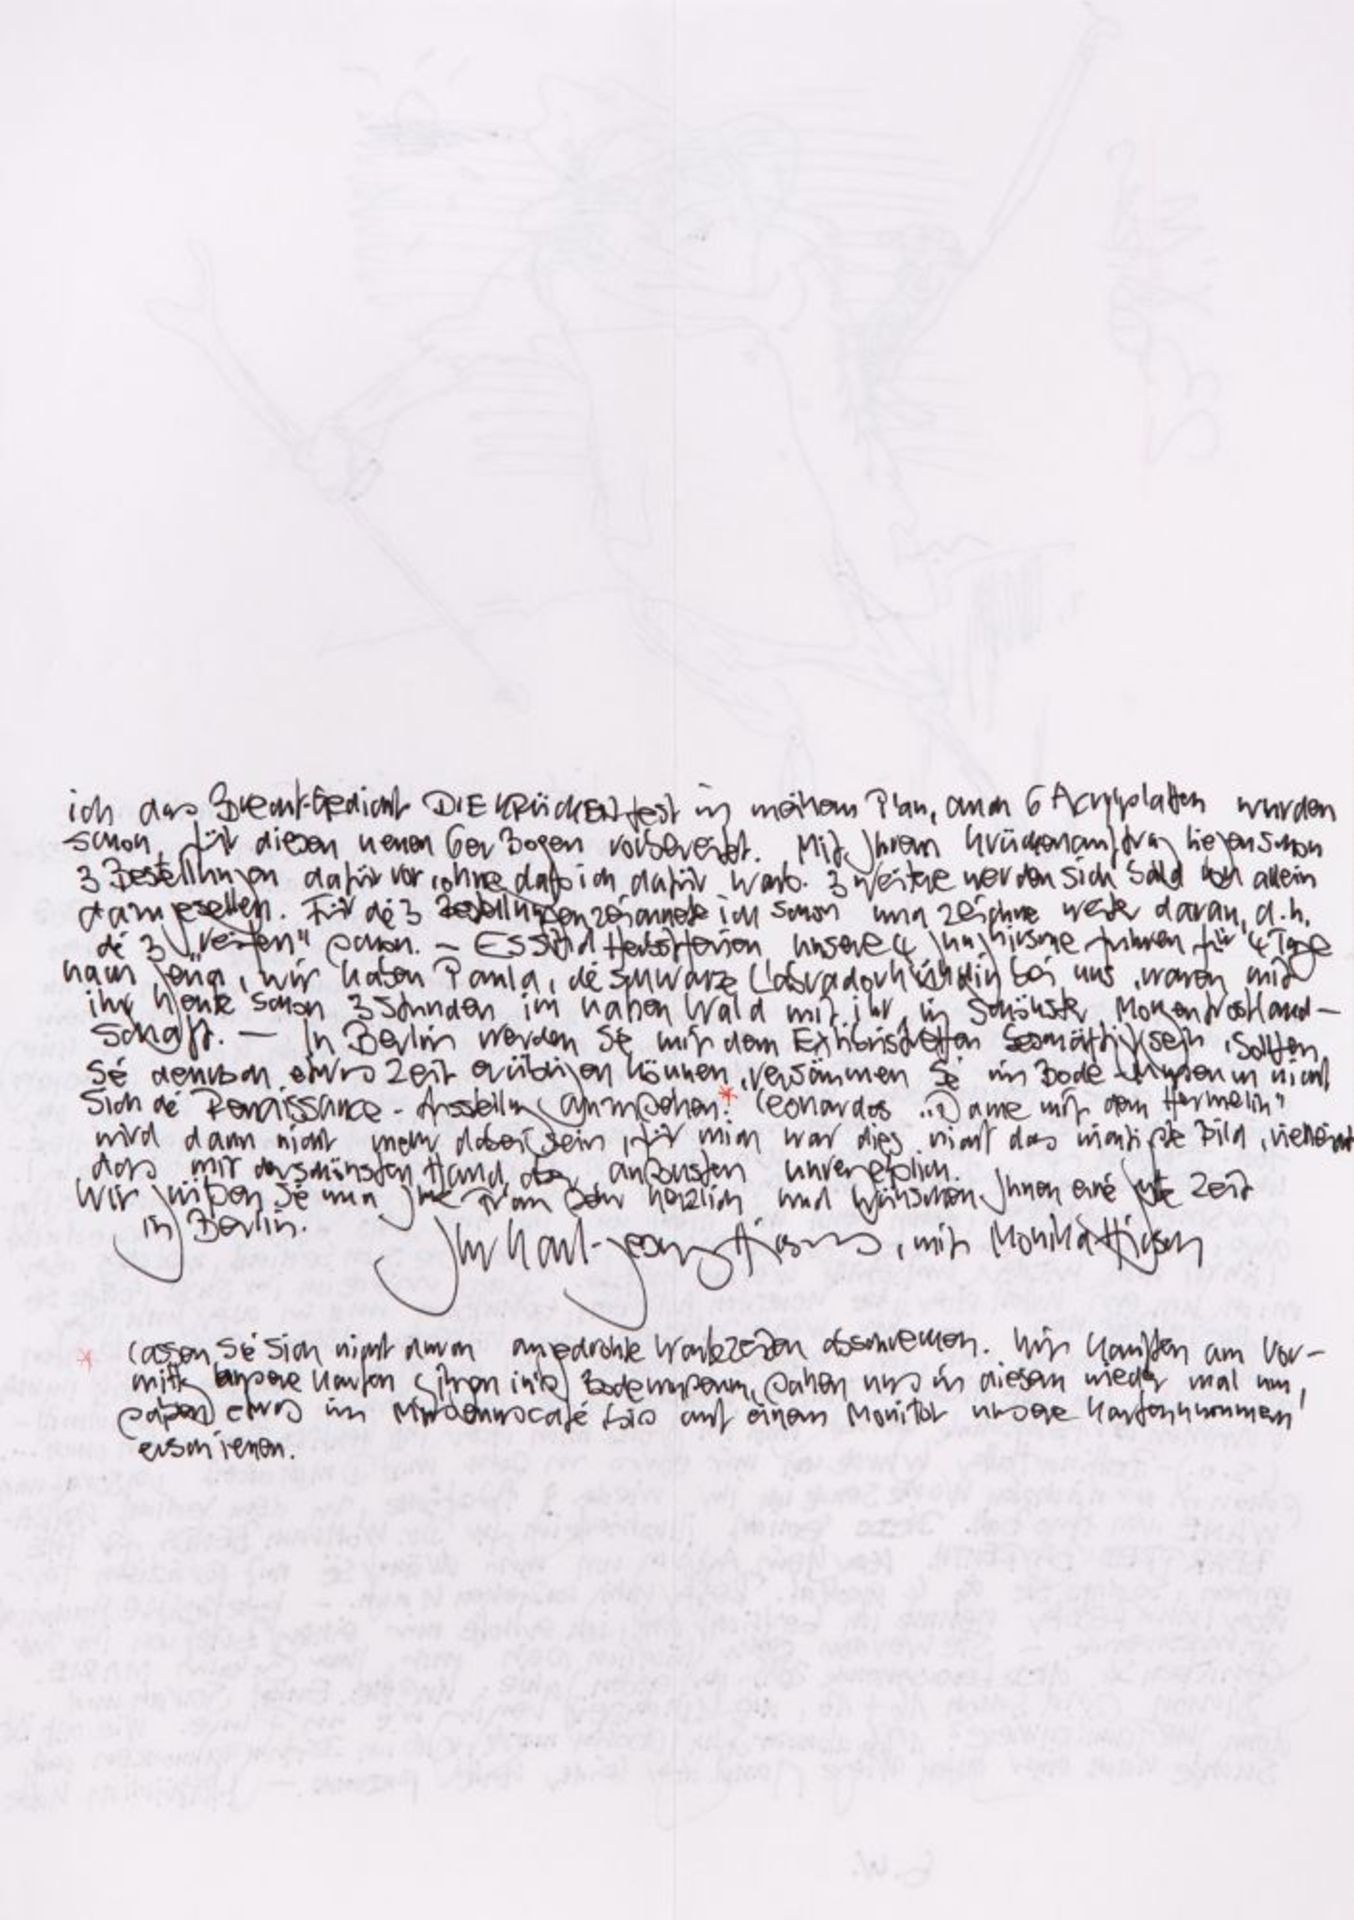 ich das Brecht-Gedicht DIE KRÜCKEN fest in meinem Plan, auch 6 Acrylplatten wurden
schon für diesen neuen 6er Bogen vorbereitet. Mit Ihrem Krückenauftrag liegen schon
3 Bestellungen dafür vor, ohne daß ich dafür warb. 3 weitere werden sich bald von allein
dazugesellen. Für die 3 Bestellungen zeichnete ich schon und zeichne weiter daran, d.h.
die 3 "reifen" schon. – Es sind Herbstferien, unsere 4 fuhren für 4 Tage
nach Jena, wir haben Paula, die schwarze Labradorhündin bei uns, waren mit
ihr heute schon 3 Stunden im nahen Wald mit ihr, in schönster
schaft. – In Berlin werden Sie mit dem Exlibristreffen beschäftigt sein, sollten
Sie dennoch etwas Zeit erübrigen können, versäumen Sie im Bode-Museum nicht
sich die Renaissance-Ausstellung anzusehen.* Leonardos "Dame mit dem Hermelin"
wird dann nicht mehr dabei sein, für mich war dies nicht das wichtigste Bild, vielleicht
das mit der schönsten Hand, aber ansonsten
Wir grüßen Sie und Ihre Frau sehr herzlich und wünschen Ihnen eine gute Zeit
in Berlin.
Ihr Karl-Georg Hirsch, mit Monika Hirsch
* Lassen Sie sich nicht durch angedrohte Wartezeiten abschrecken. Wir kauften am Vor-
mittag unsere Karten, gingen ins Bodemuseum, sahen uns in diesem wieder mal um,
saßen etwas im Museumscafé bis auf einem Monitor unsere Kartennummern
erschienen.